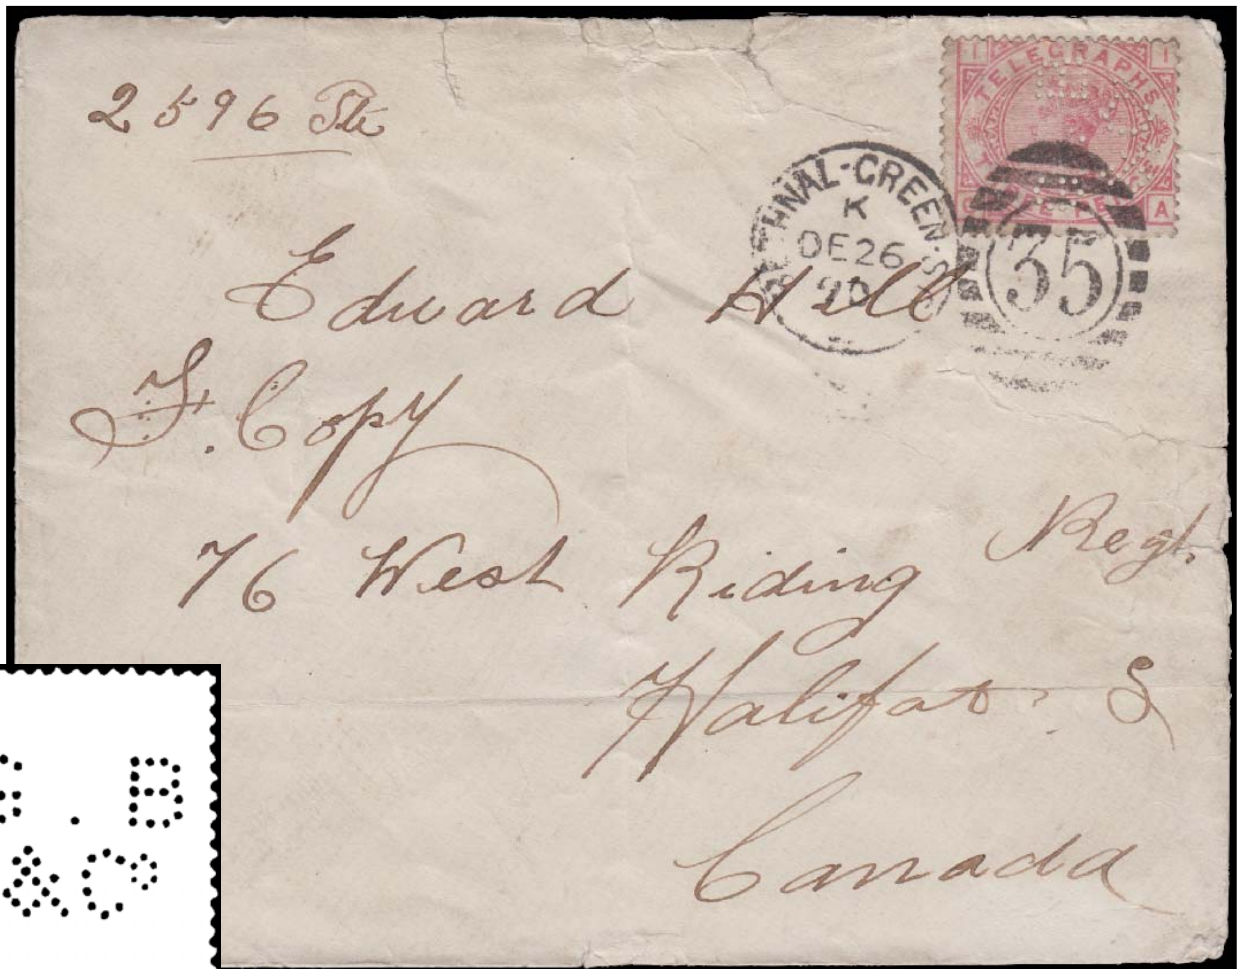 2596 Pte
TELEGRAPHS
I I
A
BETHNAL-GREEN.S.O
K
DE 26
90
35
Edward Hill
F. Copy
76 West Riding Regt.
Halifax S
Canada
. B
&Co